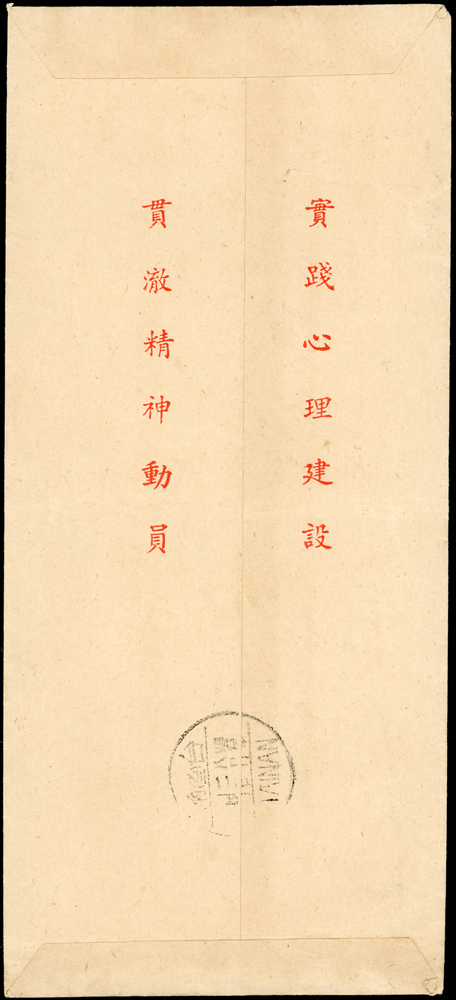 實踐心理建設
貫澈精神動員
TAINAN